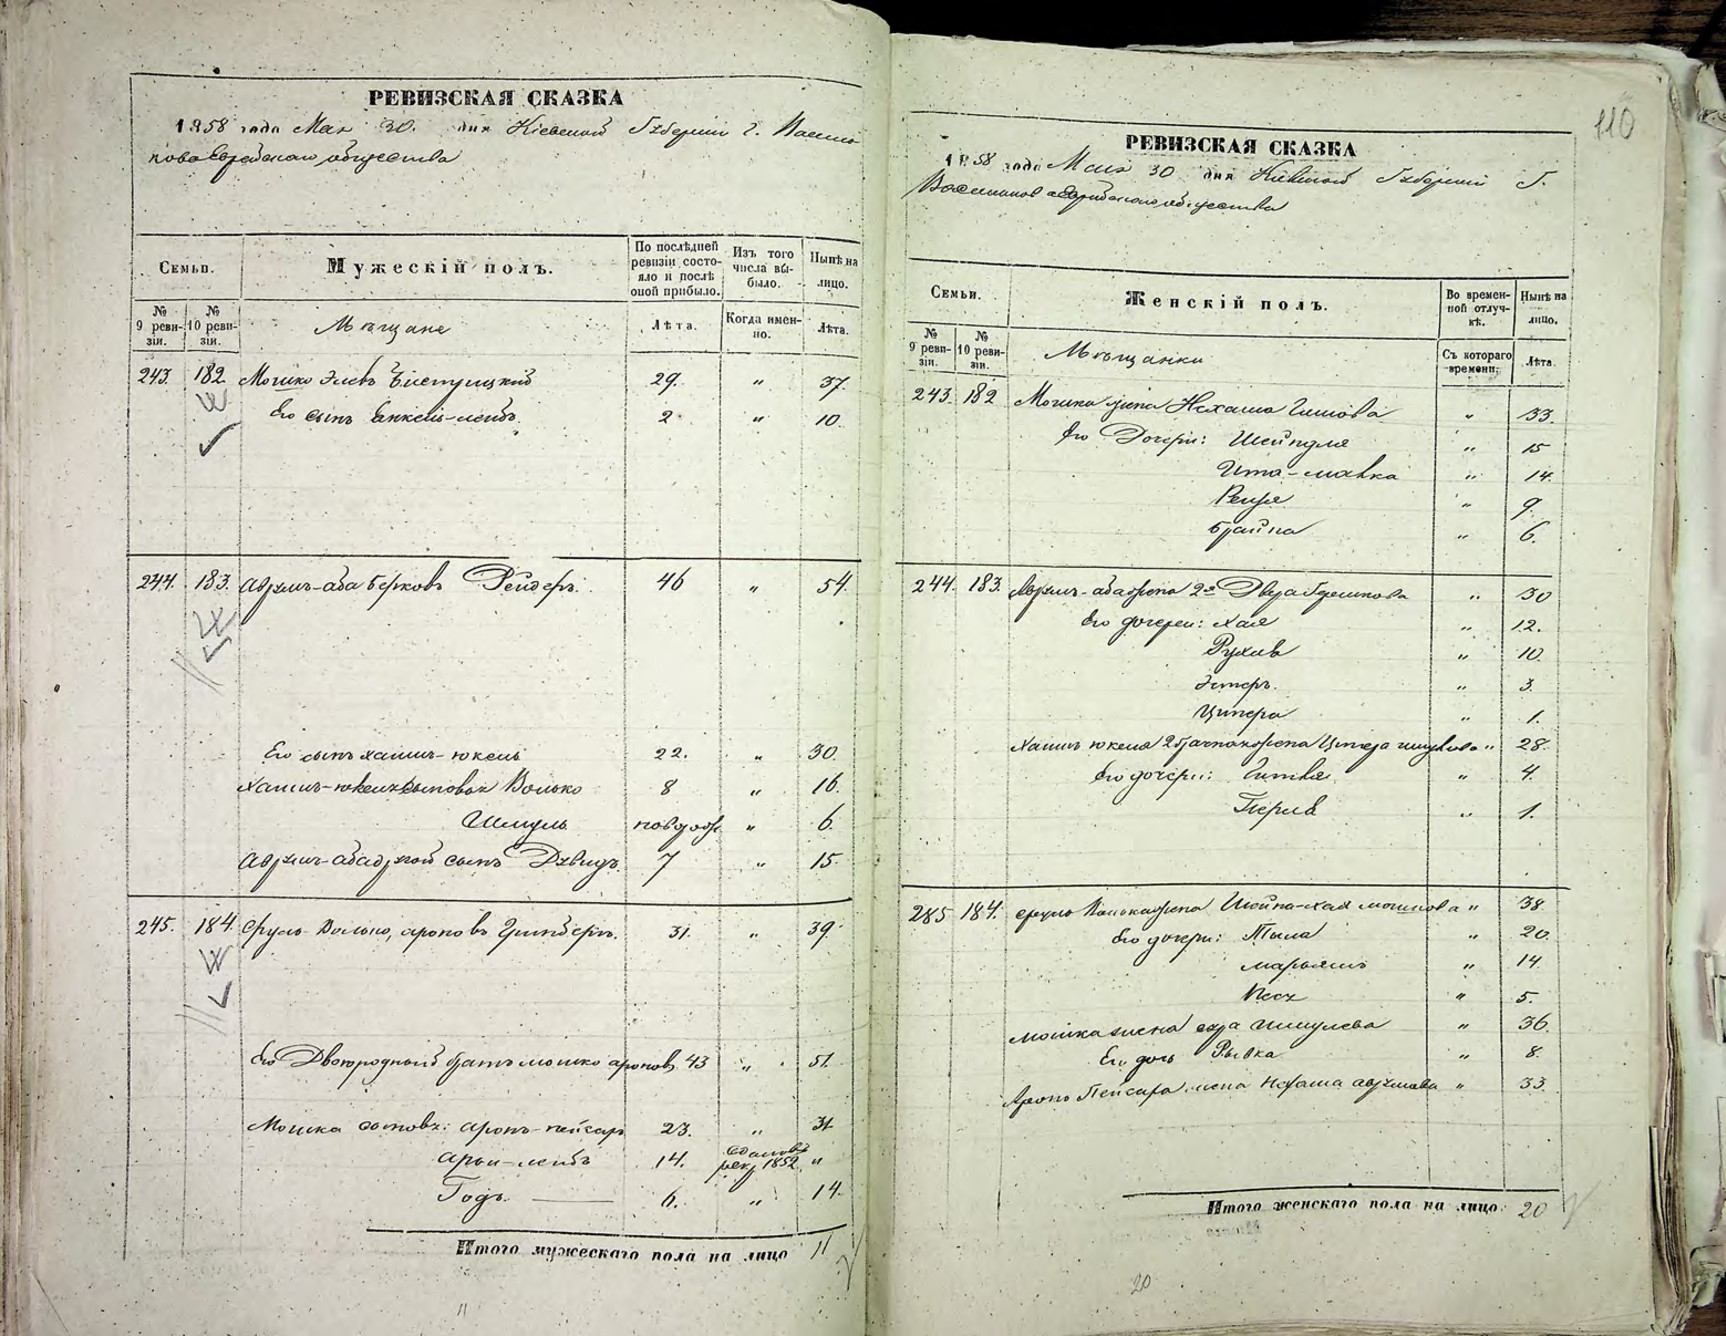 РЕВИЗСКАЯ СКАЗКА
1858 года Мая 30. дня Кіевской Губерніи г. Василь
кова Еврейскаго общества
Семьи.
Мужескій полъ.
По послѣдней ревизіи состояло и послѣ оной прибыло.
Изъ того числа выбыло.
Нынѣ на лицо.
№ 9 ревизіи.
№ 10 ревизіи.
Мѣщане
Лѣта.
Когда именно.
Лѣта.
243. 182. Мошко 29. " 37.
Его сынъ Янкель-лейбъ 2 " 10.
244. 183. Аврумъ-аба Берковъ Рейдеръ. 46 " 54.
Его сынъ хаимъ-юкель 22. " 30.
Хаимъ-юкеля сыновья Волько 8 " 16.
Шмуль новорож. " 6.
Аврумъ-аба другой сынъ Дувидъ. 7 " 15.
245. 184. Сруль-Волько, ароновъ Гринбергъ. 31. " 39.
Его Двоюродный братъ мошко ароновъ 43 " 51.
Мошка сыновья: аронъ-пейсаръ 23. " 31
арьи-лейбъ 14. рекр. 1852. "
Годъ. 6. " 14.
Итого мужескаго пола на лицо 11
11
110
РЕВИЗСКАЯ СКАЗКА
1858 года Мая 30 дня Кіевской Губерніи Г.
Василькова еврейскаго общества
Семьи.
Женскій полъ.
Во временной отлучкѣ.
Нынѣ на лицо.
№ 9 ревизіи.
№ 10 ревизіи.
Мѣщанки
Съ котораго времени.
Лѣта.
243. 182 Мошка жена Нехама 33.
Его Дочери: Шейндля " 15
Ита-малка " 14.
Рейзя " 9.
Брайна " 6.
244. 183. Аврумъ-аба жена 2я Двера " 30
Его дочери: Хая " 12.
Рухля " 10.
Эстеръ. " 3.
Ципера " 1.
Хаимъ юкеля 2 брачна жена Ципера " 28.
Его дочери: Гитля " 4.
Перля " 1.
285 184. Сруль Волька жена Шейна-хая мошкова " 38.
Его дочери: Тыла " 20.
марьямъ " 14.
Песя " 5.
мошка жена сура шмулева " 36.
Его дочь Рывка " 8.
Аронъ Пейсара жена Нехама аврумова " 33.
Итого женскаго пола на лицо 20
20